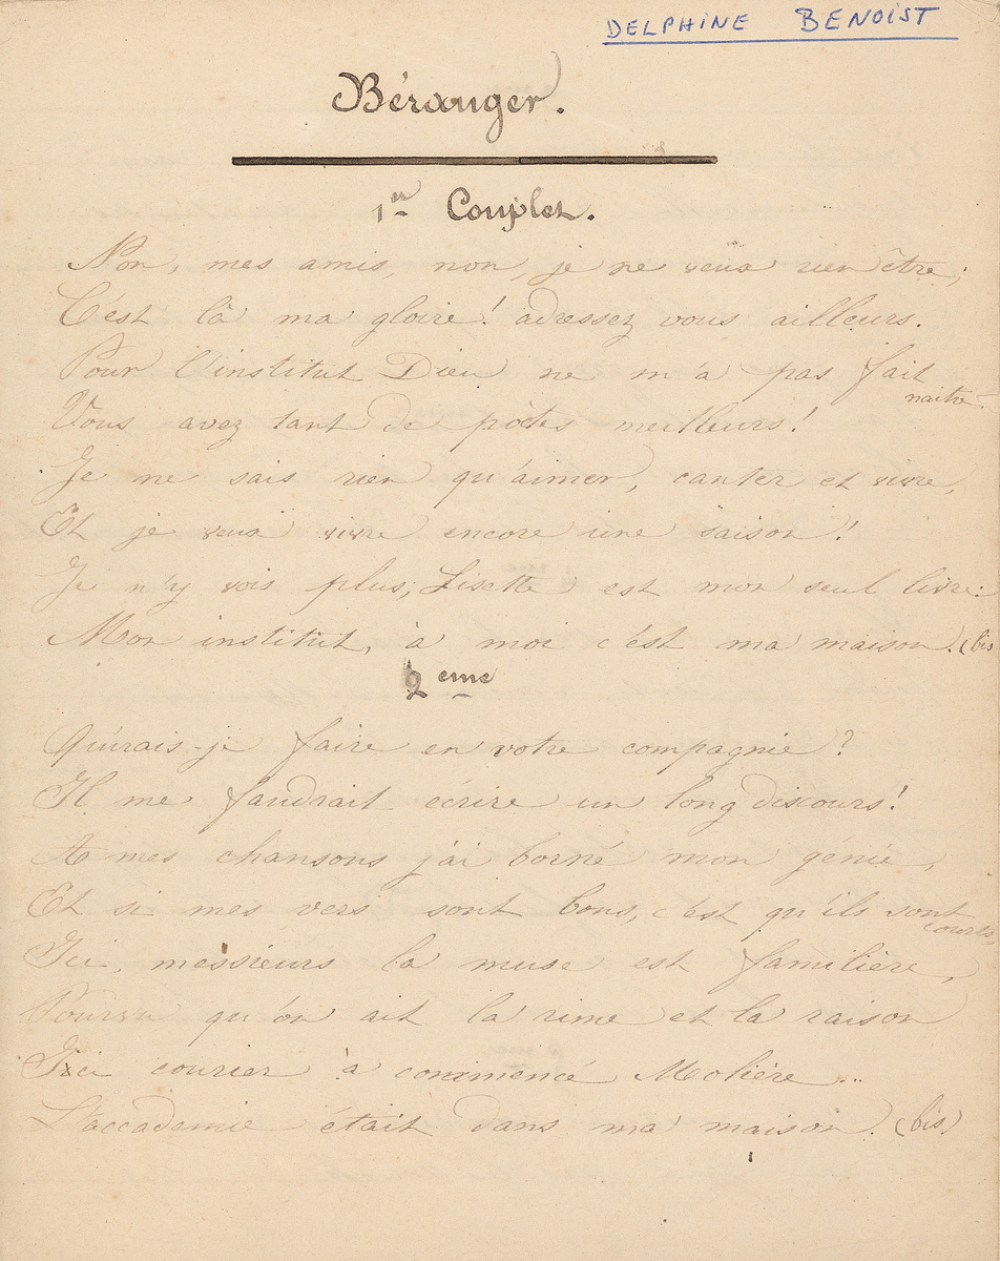 DELPHINE BENOIST
Béranger.
1er Couplet.
Non, mes amis, non, je ne veux rien être;
C'est là ma gloire! adressez vous ailleurs.
Pour l'institut Dieu ne m'a pas fait
naitre
Vous avez tant de poètes meilleurs!
Je ne sais rien qu'aimer, canter et vivre,
Et je veux vivre encore une saison!
Je n'y vois plus, Lisette est mon seul livre:
Mon institut, à moi c'est ma maison. (bis
2eme
Qu'irais-je faire en votre compagnie?
Il me faudrait écrire un long discours!
A mes chansons j'ai borné mon génie,
Et si mes vers sont bons, c'est qu'ils sont
courts,
Ici, messieurs la muse est familière,
Pourvu qu'on ait la rime et la raison
Ici courier à commencé Molière...
L'accademie était dans ma maison. (bis)